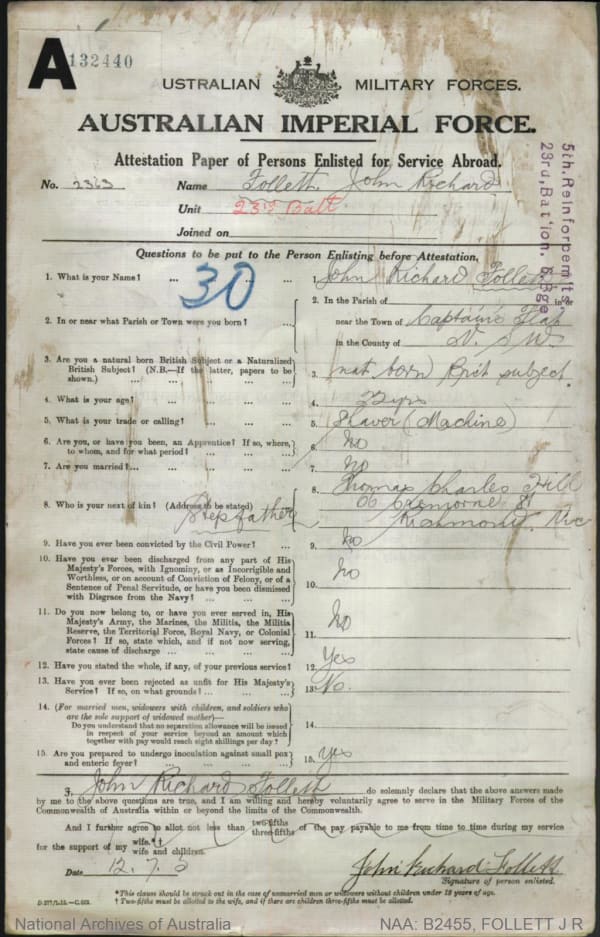 A
132440
AUSTRALIAN MILITARY FORCES.
AUSTRALIAN IMPERIAL FORCE.
Attestation Paper of Persons Enlisted for Service Abroad.
No. 2363 Name Follett John Richard
Unit 23rd Batt
Joined on
5th. Reinforcem'ts
23rd. Bat'ion. 6 B'ge
Questions to be put to the Person Enlisting before Attestation.
30
1. What is your Name? ... ... 1. John Richard Follett
2. In or near what Parish or Town were you born? ...
2. In the Parish of in or
near the Town of Captains Flat
in the County of N. S W.
3. Are you a natural born British Subject or a Naturalized
British Subject? (N.B.—If the latter, papers to be
shown.) ... ... ... 3. nat born Brit subject.
4. What is your age? ... ... 4. yrs
5. What is your trade or calling? ... ... 5. (Machine)
6. Are you, or have you been, an Apprentice? If so, where,
to whom, and for what period? ... ... 6. No
7. Are you married? ... ... ... ... 7. No
8. Who is your next of kin? (Address to be stated) Stepfather
8. Thomas Charles Hill
66 Cremorne St
Richmond. Vic
9. Have you ever been convicted by the Civil Power? ... 9. No
10. Have you ever been discharged from any part of His
Majesty's Forces, with Ignominy, or as Incorrigible and
Worthless, or on account of Conviction of Felony, or of a
Sentence of Penal Servitude, or have you been dismissed
with Disgrace from the Navy? ... ... ... 10. No
11. Do you now belong to, or have you ever served in, His
Majesty's Army, the Marines, the Militia, the Militia
Reserve, the Territorial Force, Royal Navy, or Colonial
Forces? If so, state which, and if not now serving,
state cause of discharge ... ... ... 11. No
12. Have you stated the whole, if any, of your previous service? 12. Yes
13. Have you ever been rejected as unfit for His Majesty's
Service? If so, on what grounds? ... ... 13. No.
14. (For married men, widowers with children, and soldiers who
are the sole support of widowed mother)—
Do you understand that no separation allowance will be issued
in respect of your service beyond an amount which
together with pay would reach eight shillings per day? 14.
15. Are you prepared to undergo inoculation against small pox
and enteric fever? ... ... ... 15. Yes
I, John Richard Follett do solemnly declare that the above answers made
by me to the above questions are true, and I am willing and hereby voluntarily agree to serve in the Military Forces of the
Commonwealth of Australia within or beyond the limits of the Commonwealth.
And I further agree to allot not less than two-fifths three-fifths of the pay payable to me from time to time during my service
for the support of my wife.*† wife and children.
Date 12. 7. 5 John Richard Follett
Signature of person enlisted.
*This clause should be struck out in the case of unmarried men or widowers without children under 18 years of age.
† Two-fifths must be allotted to the wife, and if there are children three-fifths must be allotted.
National Archives of Australia NAA: B2455, FOLLETT J R